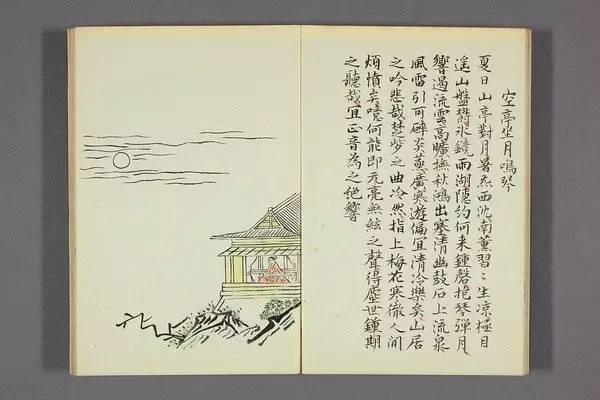 空亭坐月鳴琴
夏日山亭對月暑氣西沈南薰習〻生凉極目
遙山盤鬱氷鏡雨湖隱約何来鍾磬抱琴彈月
響遏流雲高曠撫秋鴻出塞清幽鼓石上流泉
風雷引可碎炎蒸廣寒遊偏宜清冷樂矣山居
之吟悲哉楚些之曲泠然指上梅花寒徹人間
煩憤矣噫何能即元亮無絃之聲得塵世鍾期
之聽哉宜正音為之絶響